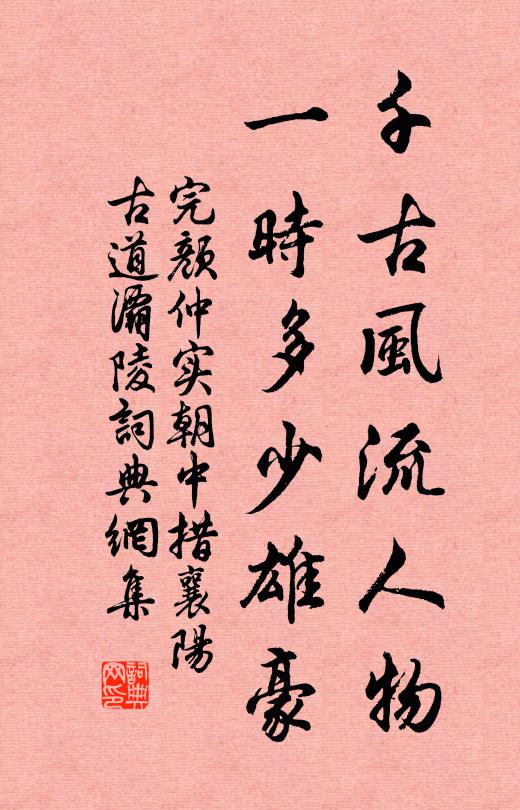 千古風流人物
一時多少雄豪
完顏仲实朝中措襄陽
古道灞陵詞典網集
詞典網印